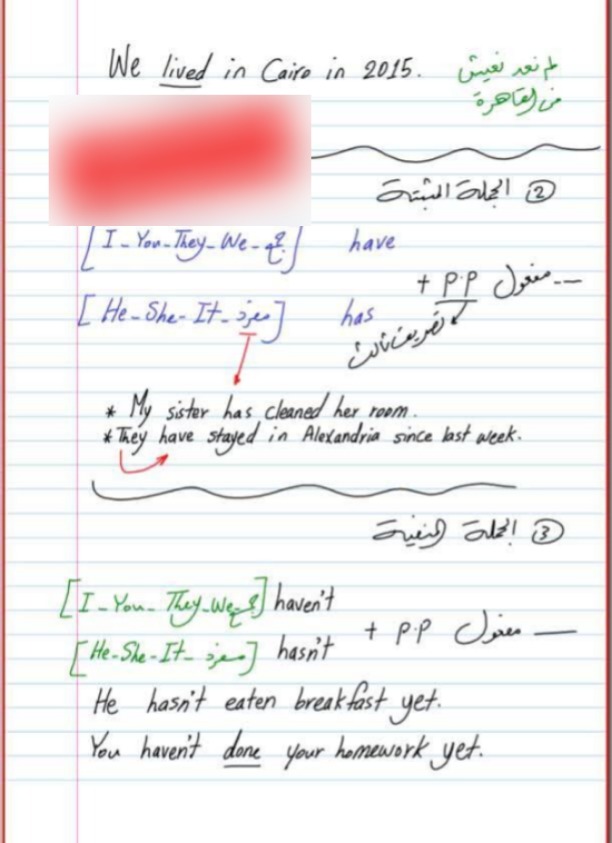 We lived in Cairo in 2015. لم نعد نعيش
في القاهرة
② الجملة المثبتة
[I-You-They-We-جمع] have
+ p.p مفعول ...
[He-She-It-مفرد] has
تصريف ثالث
* My sister has cleaned her room.
* They have stayed in Alexandria since last week.
③ الجملة المنفية
[I-You-They-We-جمع] haven't
+ p.p مفعول
[He-She-It-مفرد] hasn't
He hasn't eaten breakfast yet.
You haven't done your homework yet.